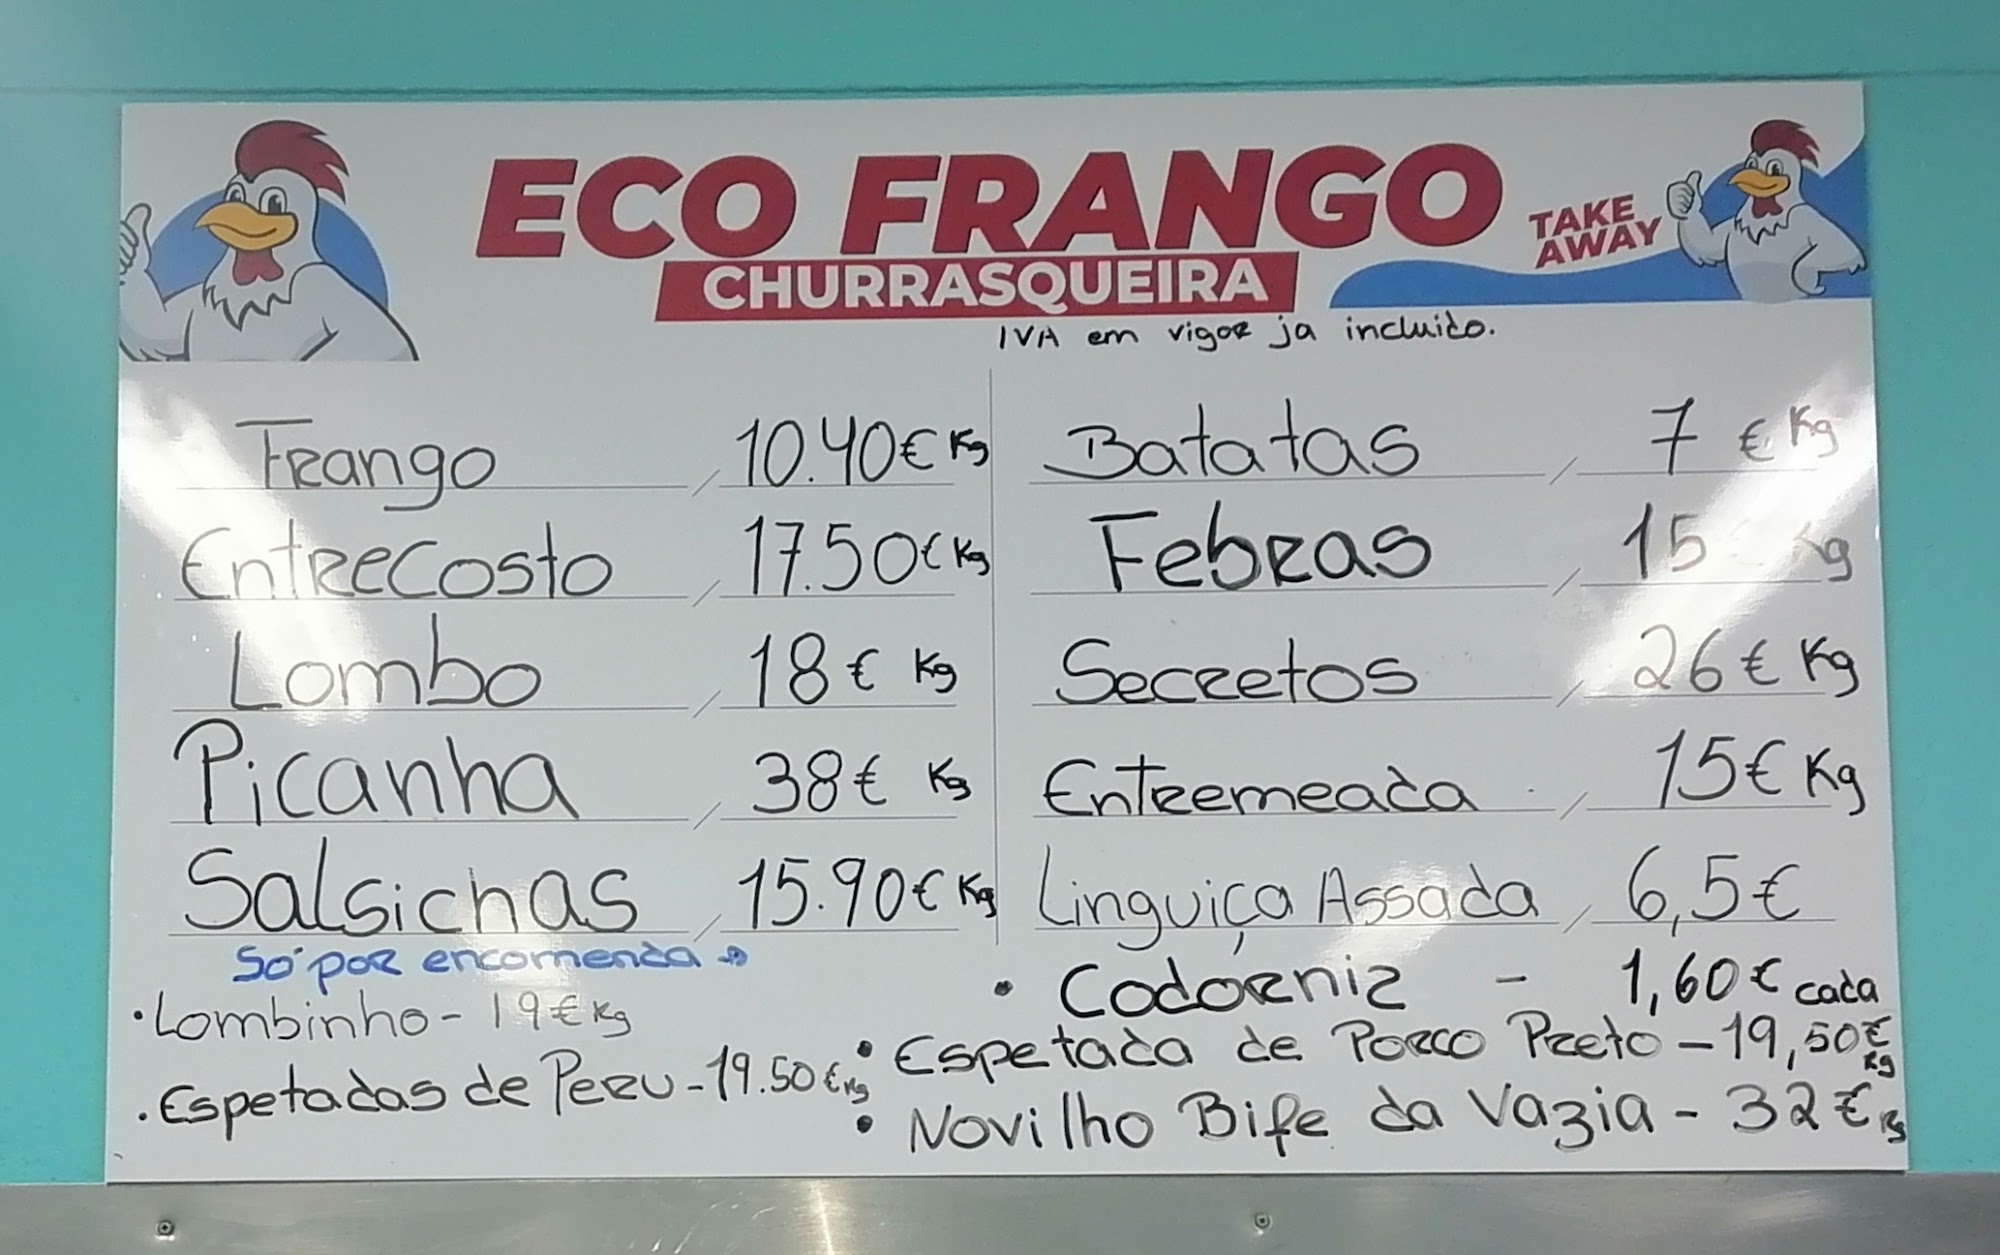 ECO FRANGO
CHURRASQUEIRA
TAKE
AWAY
IVA em vigor ja incluido.
Frango 10.40€ Kg
Entrecosto 17.50€ Kg
Lombo 18€ Kg
Picanha 38€ Kg
Salsichas 15.90€ Kg
Batatas 7 € Kg
Febras 15 € Kg
Secretos 26€ Kg
Entremeada 15€ Kg
Linguiça Assada 6,5€
Só por encomenda →
• Lombinho - 19€ Kg
• Espetadas de Peru - 19.50€ Kg
• Codorniz - 1,60€ cada
• Espetada de Porco Preto - 19,50€ Kg
• Novilho Bife da Vazia - 32€ Kg